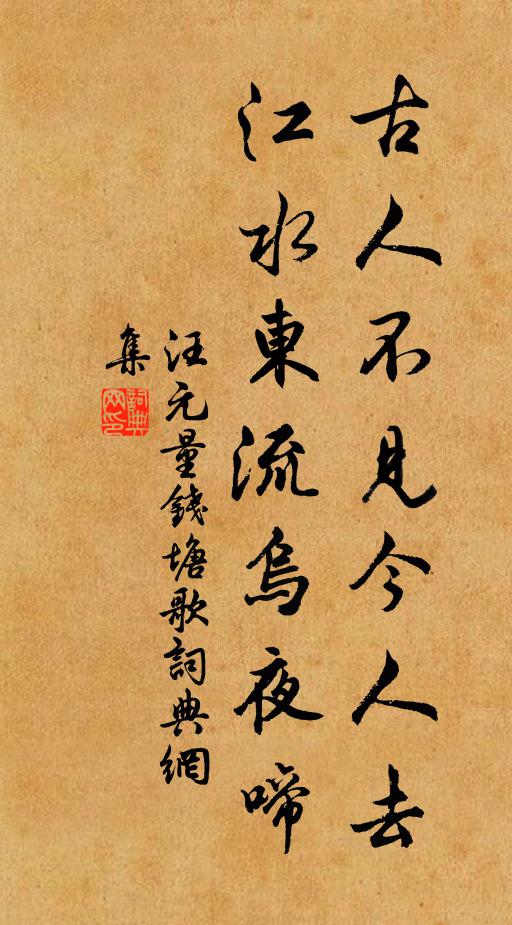 古人不見今人去
江水東流烏夜啼
汪元量錢塘歌詞典網
集
詞典網印